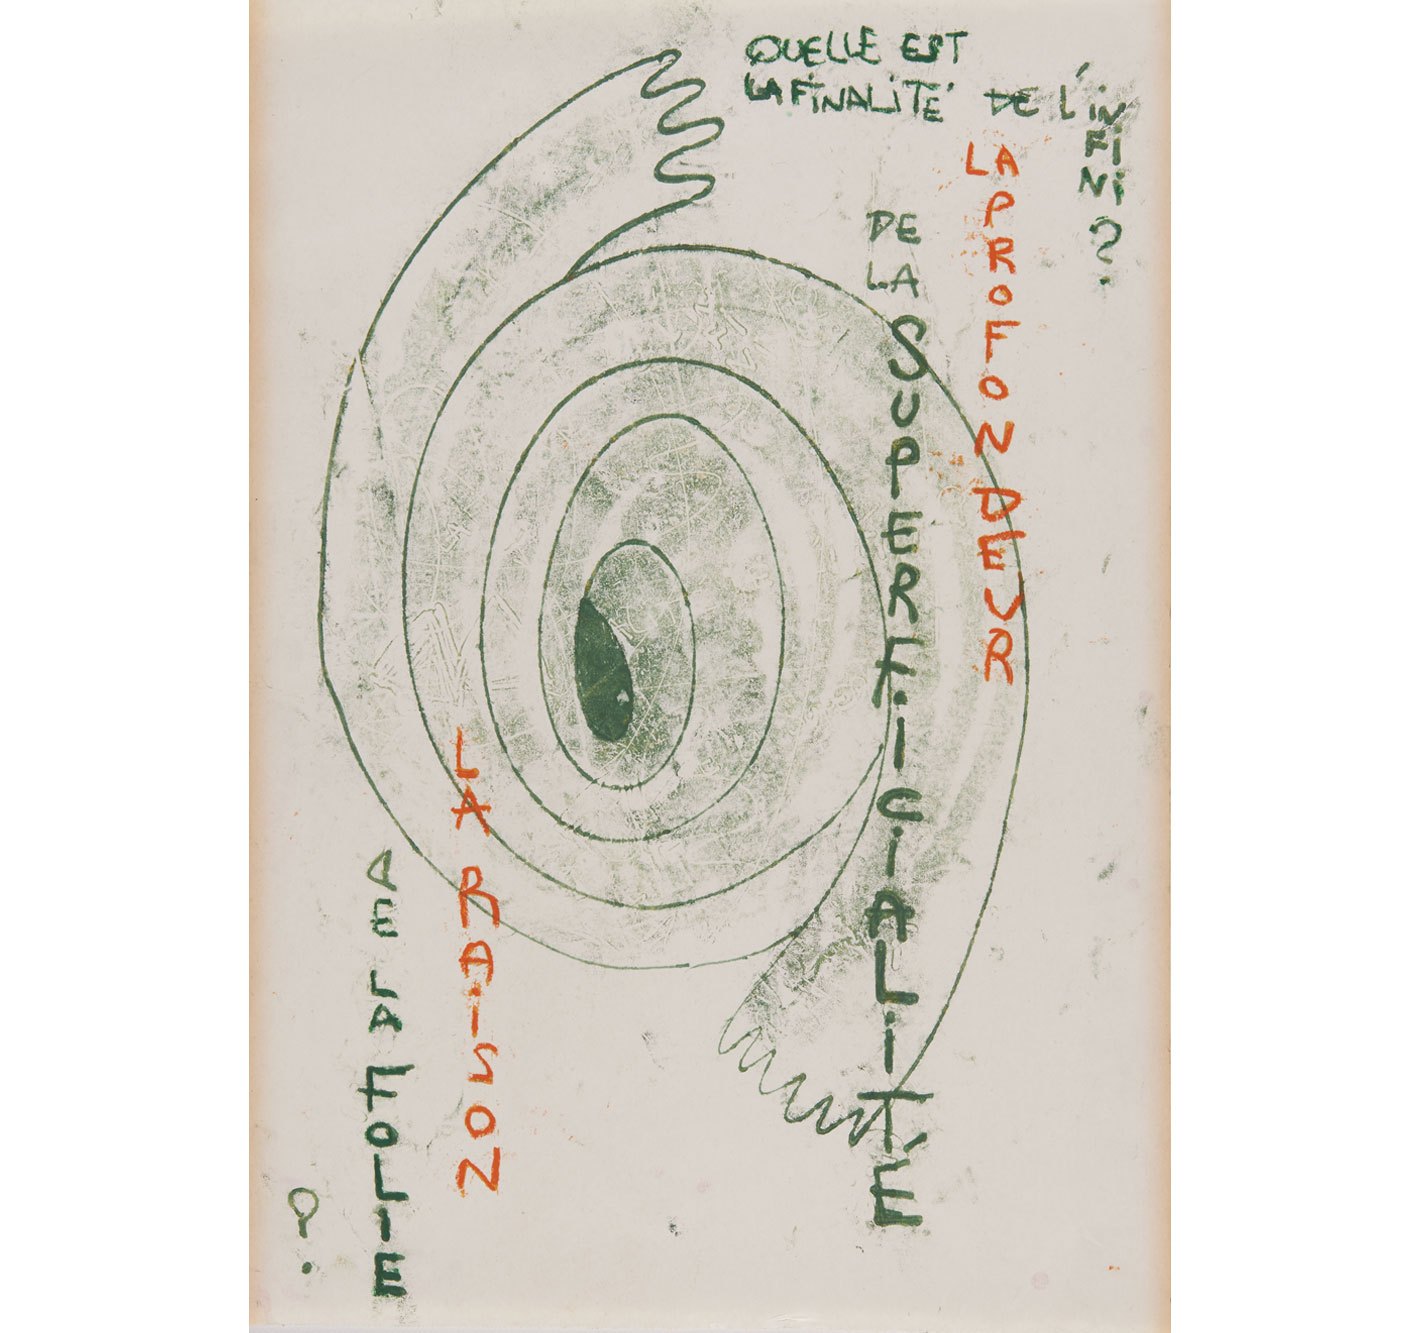 QUELLE EST
LA FiNALiTÉ DE L'iN
Fi
Ni
?
LA PROFONDEUR
DE
LA SUPERFiCiALiTÉ
LA RAiSON
DE LA FOLIE
?